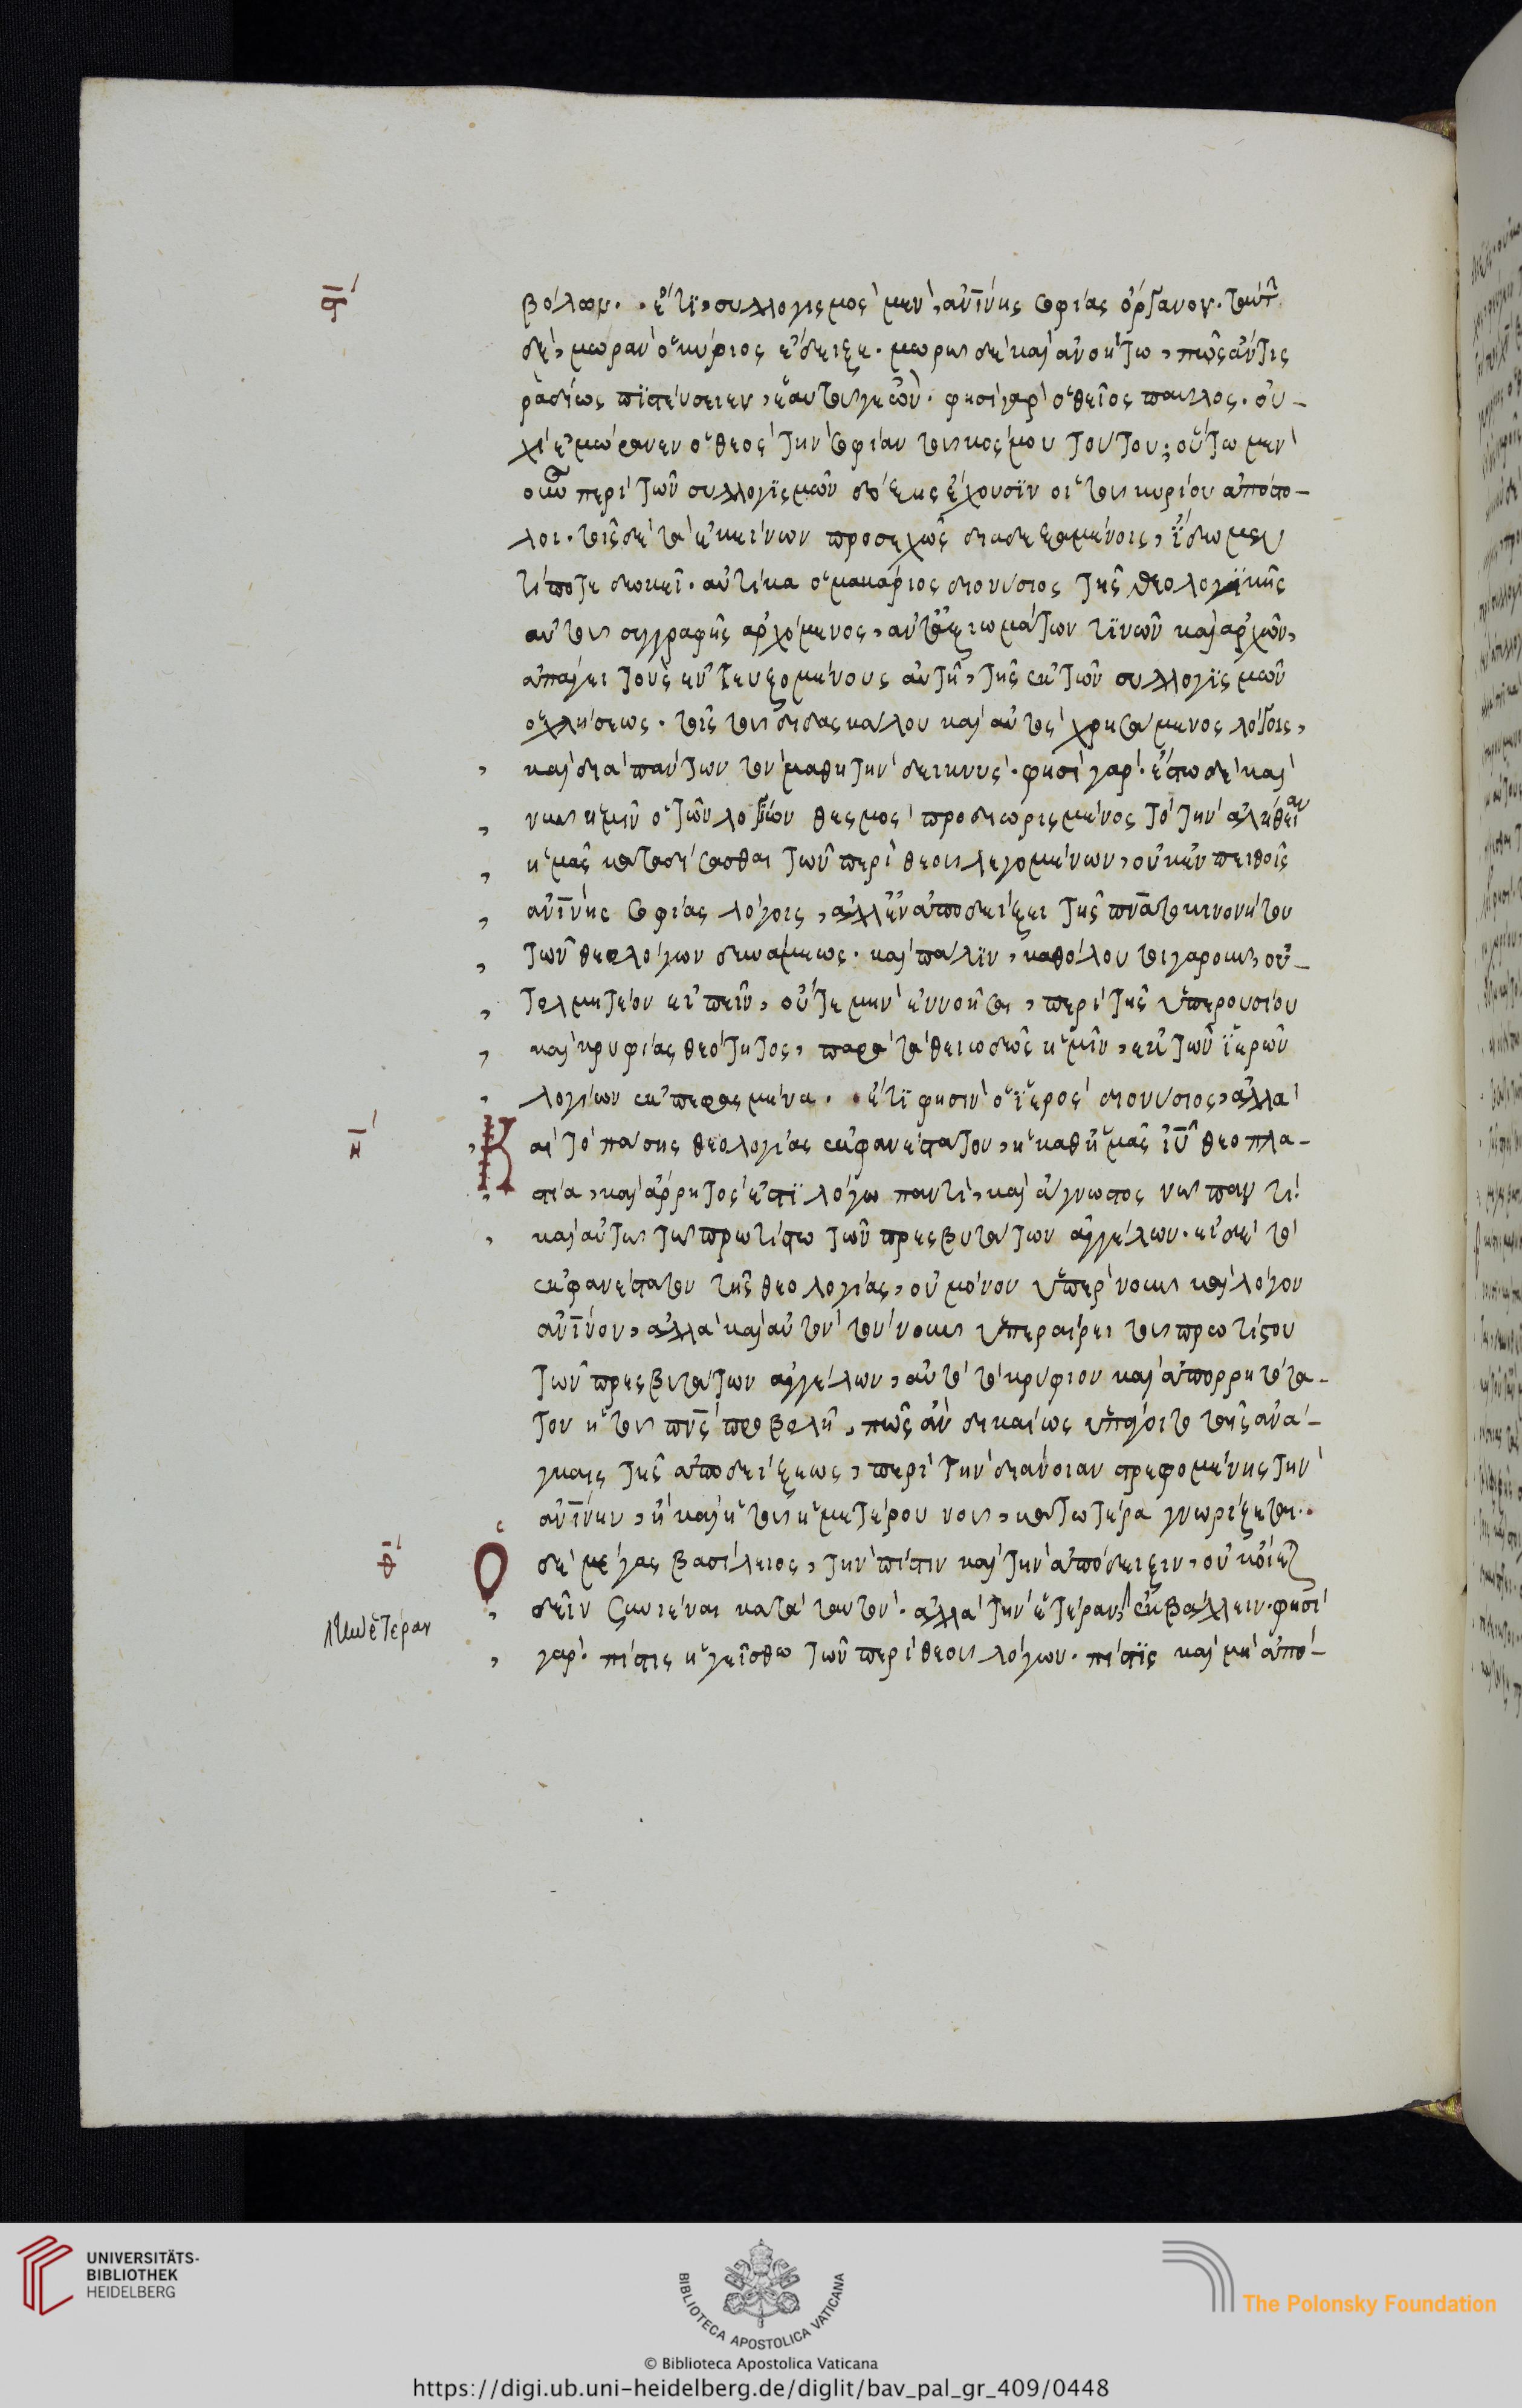 ζ
βόλων. ἔτι, συλλογισμὸς μὲν, ἀνίνης σοφίας ὄργανον. ταύτ
δὲ, μωρὰν ὁ κύριος ἔδειξε. μωρῶ δὲ καὶ ἀνοήτω, πῶς ἄν τις
ραδίως πιστεύσειεν, ἑαυτοῦ γε ὢν. φησὶ γὰρ ὁ θεῖος παῦλος. οὐ-
χὶ ἐμώρανεν ὁ θεὸς τὴν σοφίαν τοῦ κόσμου τούτου; οὕτω μὲν
οὖν περὶ τῶν συλλογισμῶν δόξης ἔχουσιν οἱ τοῦ κυρίου ἀπόστο-
λοι. τοῖς δὲ τὰ ἐκείνων προσεχῶς διαδεξαμένοις, ἴδωμεν
τί ποτε δοκεῖ. αὐτίκα ὁ μακάριος διονύσιος τῆς θεολογικῆς
αὐτοῦ συγγραφῆς ἀρχόμενος, ἀντ ἀξιωμάτων τινῶν καὶ ἀρχῶν,
ἀπάγει τοὺς ἐντευξομένους αὐτῆ, τῆς ἐκ τῶν συλλογισμῶν
ὀχλήσεως. τοῖς τοῦ διδασκάλου καὶ αὐτὸς χρησάμενος λόγοις,
καὶ διὰ πάντων τὸν μαθητὴν δεικνύς. φησὶ γάρ. ἔστω δὲ καὶ
νῦν ἡμῖν ὁ τῶν λογίων θεσμὸς προδιωρισμένος τὸ τὴν ἀλήθειαν
ἡμᾶς καταδήσασθαι τῶν περὶ θεοῦ λεγομένων, οὐκ ἐν πειθοῖς
ἀνίνης σοφίας λόγοις, ἀλλ ἐν ἀποδείξει τῆς πνατοκινονήτου
τῶν θεολόγων δυνάμεως. καὶ πάλιν, καθόλου τοιγαροῦν, οὐ-
τολμητέον εἰπεῖν, οὔτε μὴν ἐννοῆσαι, περὶ τῆς ὑπερουσίου
καὶ κρυφίας θεότητος, παρὰ τὰ θειωδῶς ἡμῖν, ἐκ τῶν ἱερῶν
λογίων ἐκπεφασμένα. ἔτι φησιν ὁ ἱερὸς διονύσιος, ἀλλὰ
η
Καὶ τὸ πάσης θεολογίας ἐκφανέστατον, ἡ καθ ἡμᾶς ἰῦ θεοπλα-
στία, καὶ ἄρρητός ἐστι λόγω παντὶ, καὶ ἄγνωστος νῶ παντὶ
καὶ αὐτῶ τῶ πρωτίστω τῶν πρεσβυτάτων ἀγγέλων. εἰ δὲ τὸ
ἐκφανέστατον τῆς θεολογίας, οὐ μόνον ὑπὲρ νοῦν καὶ λόγον
ἀνίνον, ἀλλὰ καὶ αὐτὸν τὸν νοῦν ὑπεραίρει τοῦ πρωτίστου
τῶν πρεσβυτάτων ἀγγέλων, αὐτὸ τὸ κρύφιον καὶ ἀπορρητότα-
τον ἡ τοῦ πνς προβολὴ, πῶς ἂν δικαίως ὑπάγοιτο ταῖς ἀνά-
γκαις τῆς ἀποδείξεως, περὶ τὴν διάνοιαν στρεφομένης τὴν
ἀνίνην, ἣ καὶ ἡ τοῦ ἡμετέρου νοῦ, κατωτέρα γνωρίζεται.
θ
Ὁ δὲ μέγας βασίλειος, τὴν πίστιν καὶ τὴν ἀπόδειξιν, οὐκ οἴεται
δεῖν συνιέναι κατὰ ταυτὸν. ἀλλὰ τὴν ἑτέραν, ἐκβάλλειν. φησὶ
τὴν ἑτέραν
γάρ. πίστις ἡγείσθω τῶν περὶ θεοῦ λόγων. πίστις καὶ μὴ ἀπό-
UNIVERSITÄTS-
BIBLIOTHEK
HEIDELBERG
BIBLIOTECA APOSTOLICA VATICANA
The Polonsky Foundation
© Biblioteca Apostolica Vaticana
https://digi.ub.uni-heidelberg.de/diglit/bav_pal_gr_409/0448